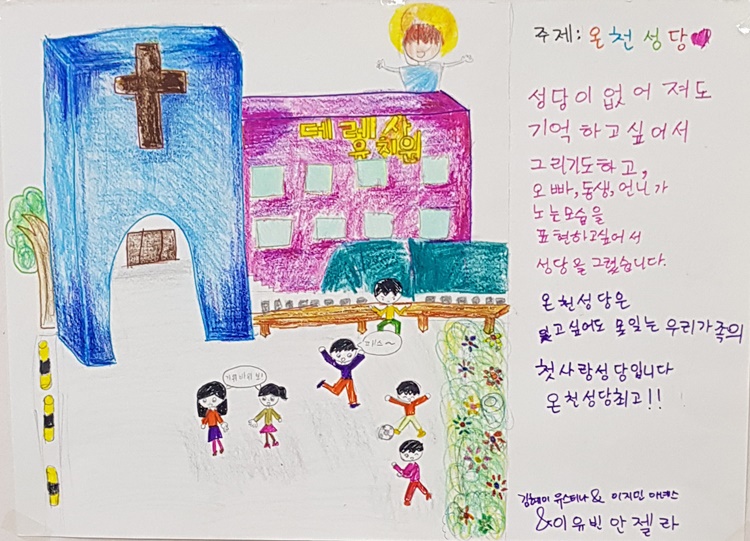 데레사
유치원
패스~
가위바위보!
주제: 온천성당
성당이 없어져도
기억하고싶어서
그리기도하고,
오빠,동생,언니가
노는모습을
표현하고싶어서
성당을 그렸습니다.
온천성당은
잊고싶어도 못잊는 우리가족의
첫사랑성당입니다
온천성당최고!!
김혜이 유스티나 & 이지민 아녜스
&이유빈안젤라